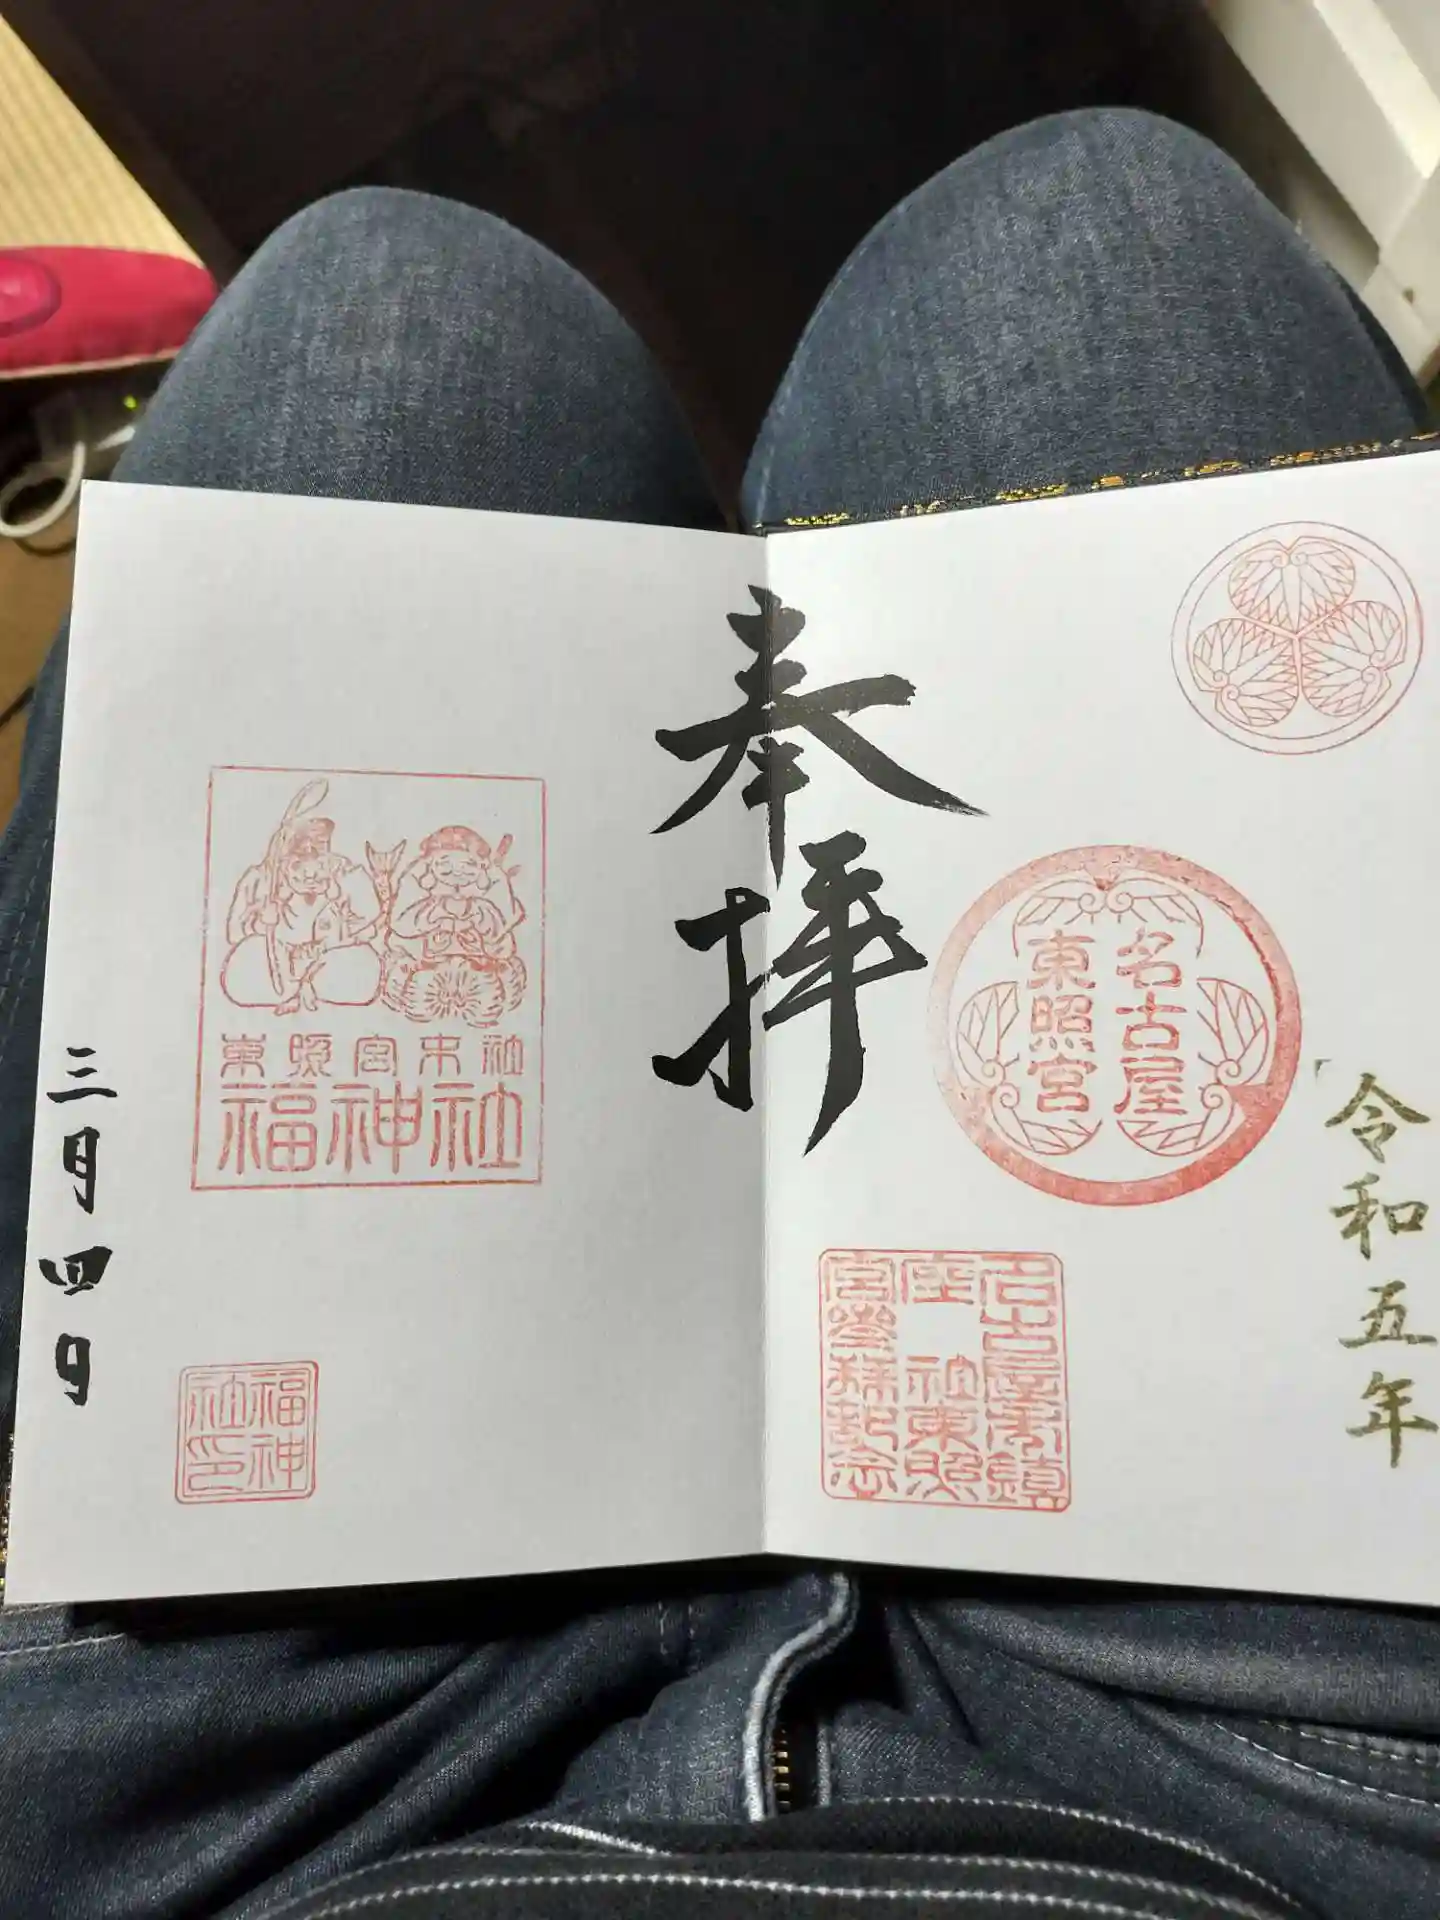 令和五年
名古屋
東照宮
名古屋市鎮
座 社東照
宮参拝記念
奉拝
東照宮末社
福神社
福神
社印
三月四日